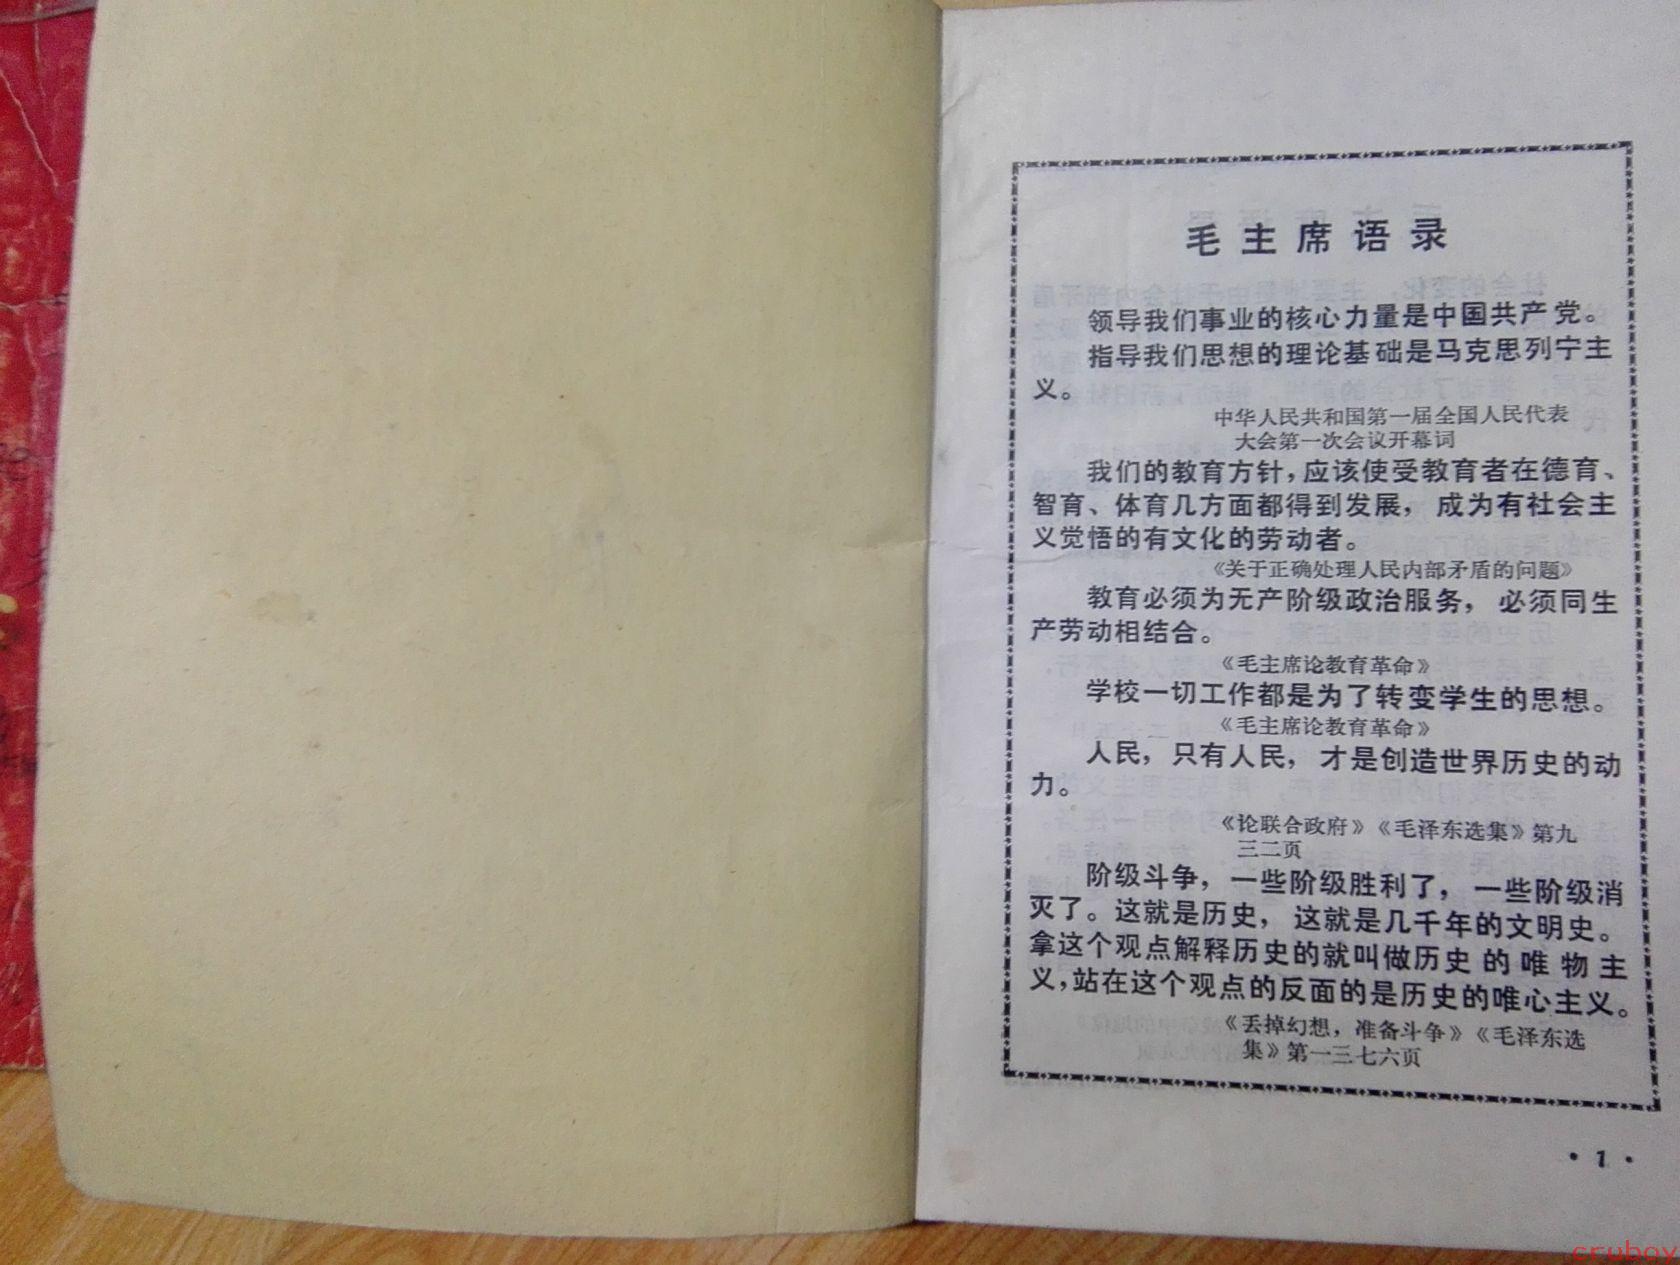 毛主席语录
领导我们事业的核心力量是中国共产党。
指导我们思想的理论基础是马克思列宁主
义。
中华人民共和国第一届全国人民代表
大会第一次会议开幕词
我们的教育方针，应该使受教育者在德育、
智育、体育几方面都得到发展，成为有社会主
义觉悟的有文化的劳动者。
《关于正确处理人民内部矛盾的问题》
教育必须为无产阶级政治服务，必须同生
产劳动相结合。
《毛主席论教育革命》
学校一切工作都是为了转变学生的思想。
《毛主席论教育革命》
人民，只有人民，才是创造世界历史的动
力。
《论联合政府》《毛泽东选集》第九
三二页
阶级斗争，一些阶级胜利了，一些阶级消
灭了。这就是历史，这就是几千年的文明史。
拿这个观点解释历史的就叫做历史的唯物主
义，站在这个观点的反面的是历史的唯心主义。
《丢掉幻想，准备斗争》《毛泽东选
集》第一三七六页
·1·
crubox